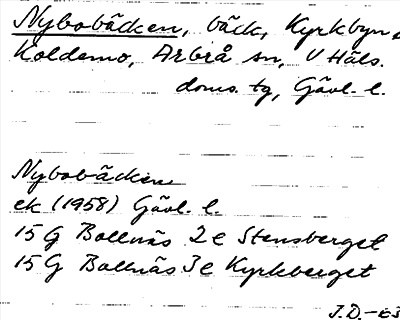 Nybobäcken, bäck, Kyrkbyn,
Koldemo, Arbrå sn, V Häls.
doms. tg, Gävl. l.
Nybobäcken
ek (1958) Gävl. l.
15 G Bollnäs 2 e Stensberget
15 G Bollnäs 3 e Kyrkberget
J.D.-83